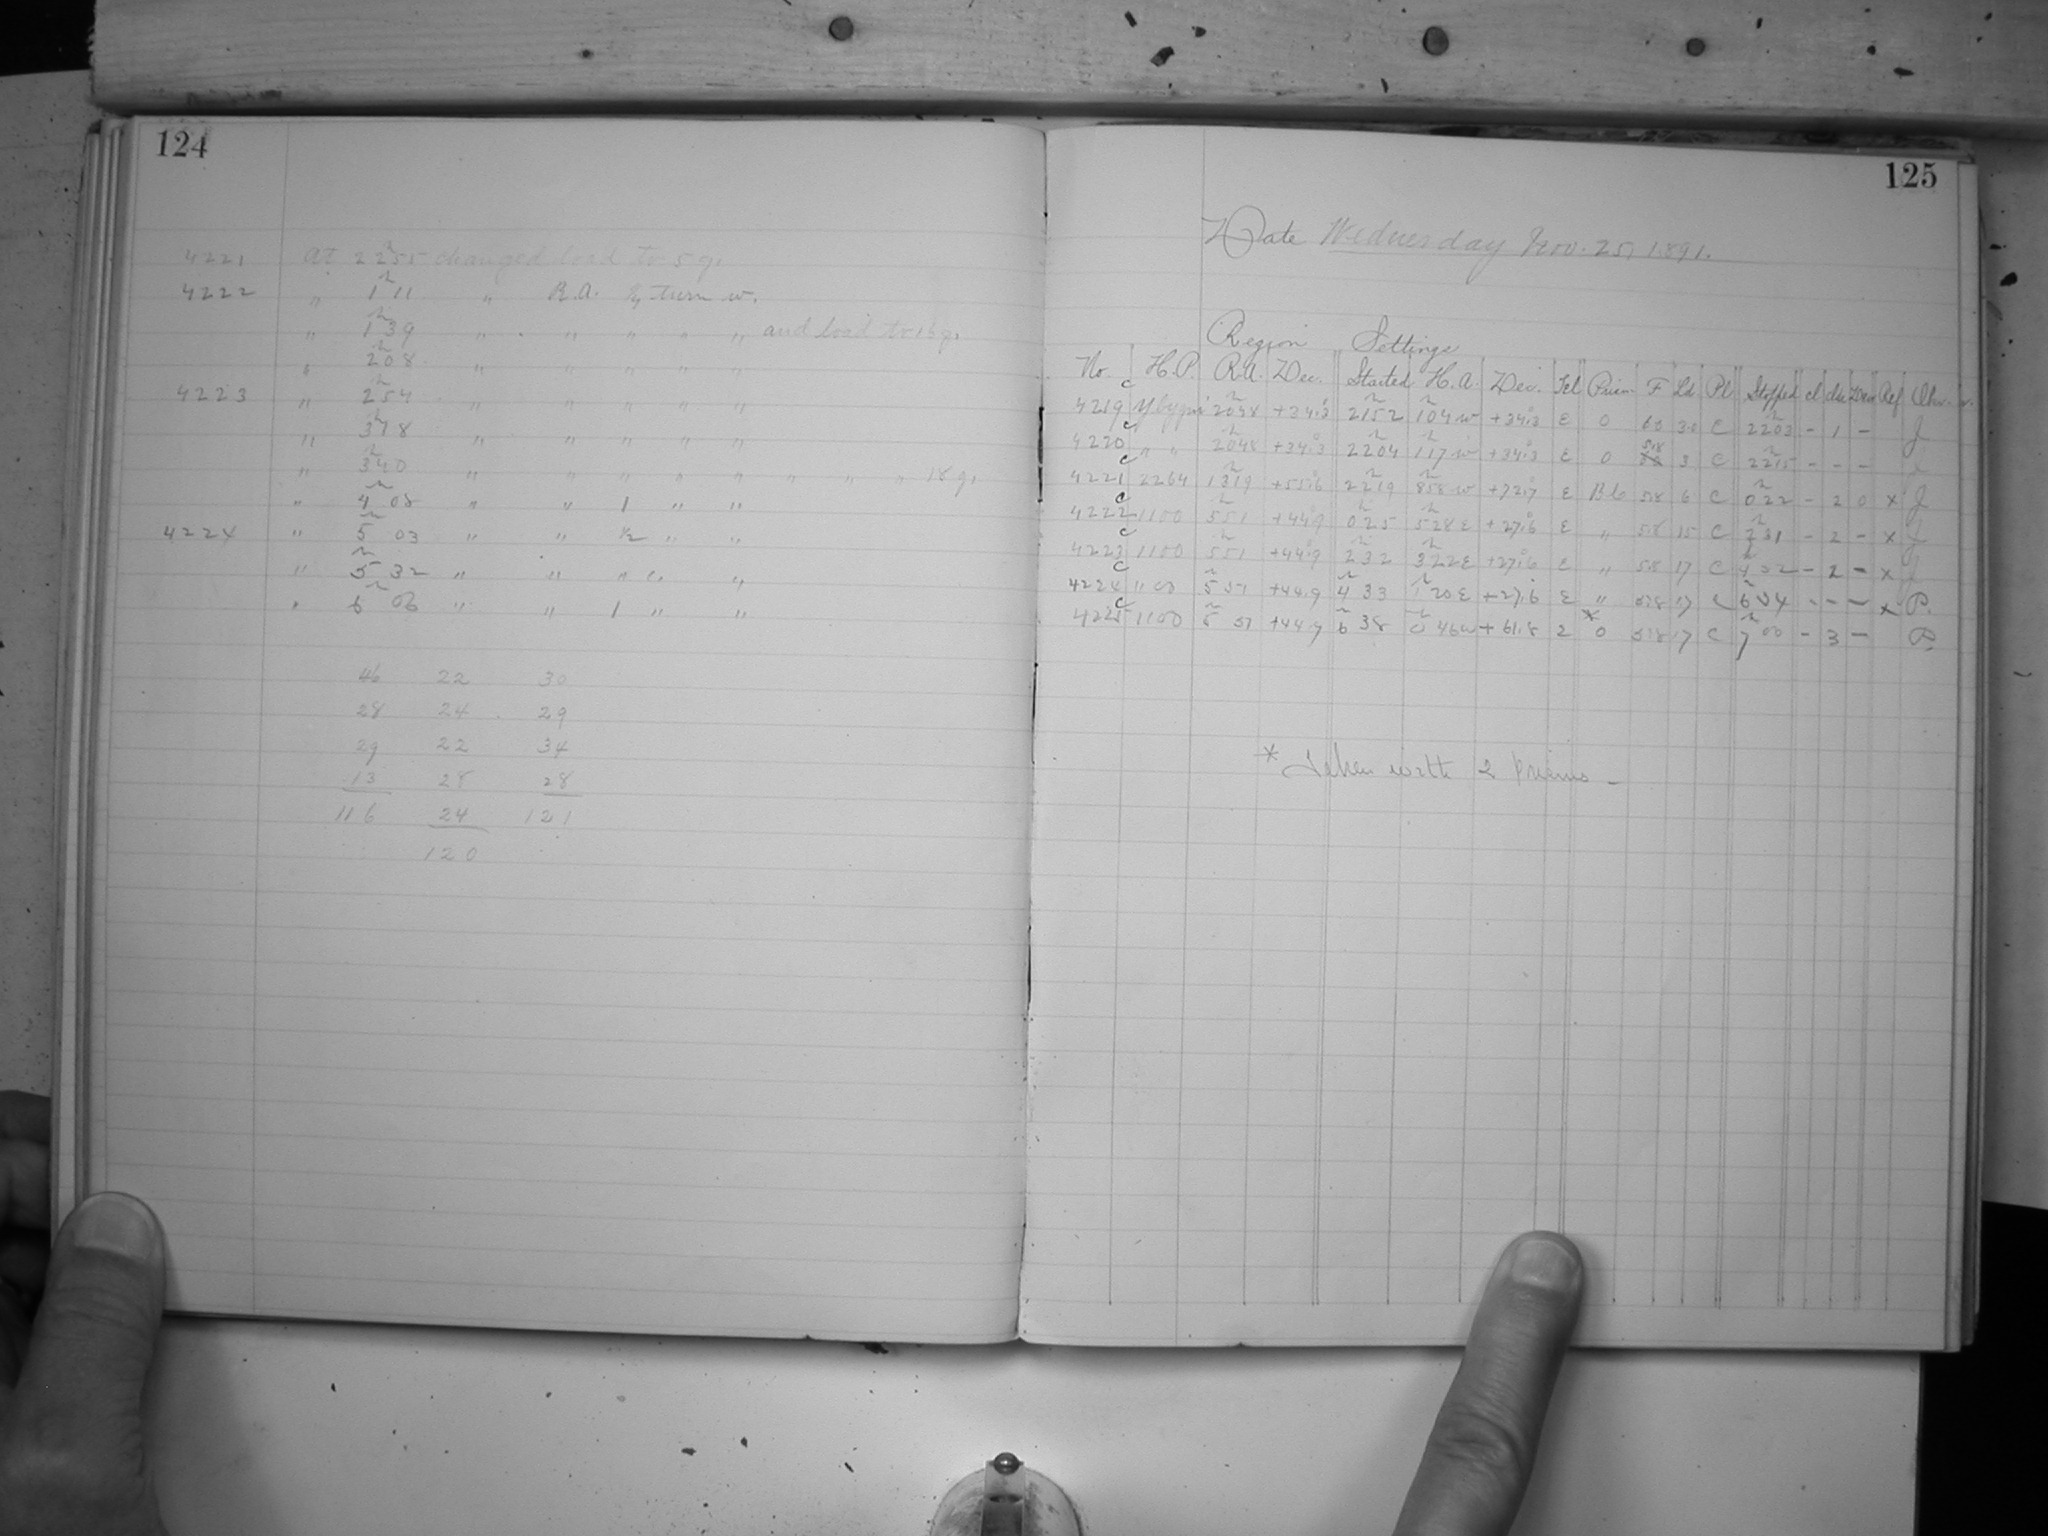 124
4221 At 22 55 changed load to 5 g.
4222 " 1 11 " R.A. ½ turn w.
" 1 39 " " " " " and load to 16 g.
" 2 08 " " " " "
4223 " 2 54 " " " " "
" 3 18 " " " " "
" 3 40 " " " " " " " " 18 g.
" 4 08 " " 1 " "
4224 " 5 03 " " ½ " "
" 5 32 " " " " "
" 6 06 " " 1 " "
46 22 30
28 24 29
29 22 34
13 28 28
116 24 121
120
125
Date Wednesday Nov. 25, 1891.
Region Settings
No. H.P. R.A. Dec. Started H.A. Dec. Tel Prism F Ld Pl Stopped cl dw Dew Ref Obs.
4219 c 20 48 +34.3 21 52 1 04 w +34.3 E 0 60 30 C 22 03 - 1 - J
4220 c " " 20 48 +34.3 22 04 1 17 w +34.3 E 0 58 3 C 22 15 - - -
4221 c 2264 13 19 +55.6 22 19 8 58 w +72.7 E B6 58 6 C 0 22 - 2 0 x J
4222 c 1100 5 51 +44.9 0 25 5 28 E +27.6 E " 58 15 C 2 31 - 2 - x J
4223 c 1100 5 51 +44.9 2 32 3 22 E +27.6 E " 58 17 C 4 32 - 2 - x J
4224 c 1100 5 51 +44.9 4 33 1 20 E +27.6 E " 58 17 C 6 34 - - - x P.
4225 c 1100 5 51 +44.9 6 38 0 46 w +61.8 2 * 0 58 17 C 7 00 - 3 - P.
* Taken with 2 prisms -